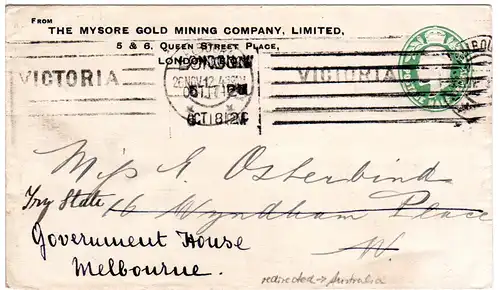 FROM
THE MYSORE GOLD MINING COMPANY, LIMITED,
5 & 6, QUEEN STREET PLACE,
LONDON
VICTORIA
VICTORIA
26 NOV 12
OCT 18 12
Miss E Osterbind
Try State
16 Wyndham Place
W.
Government House
Melbourne.
redirected → Australia